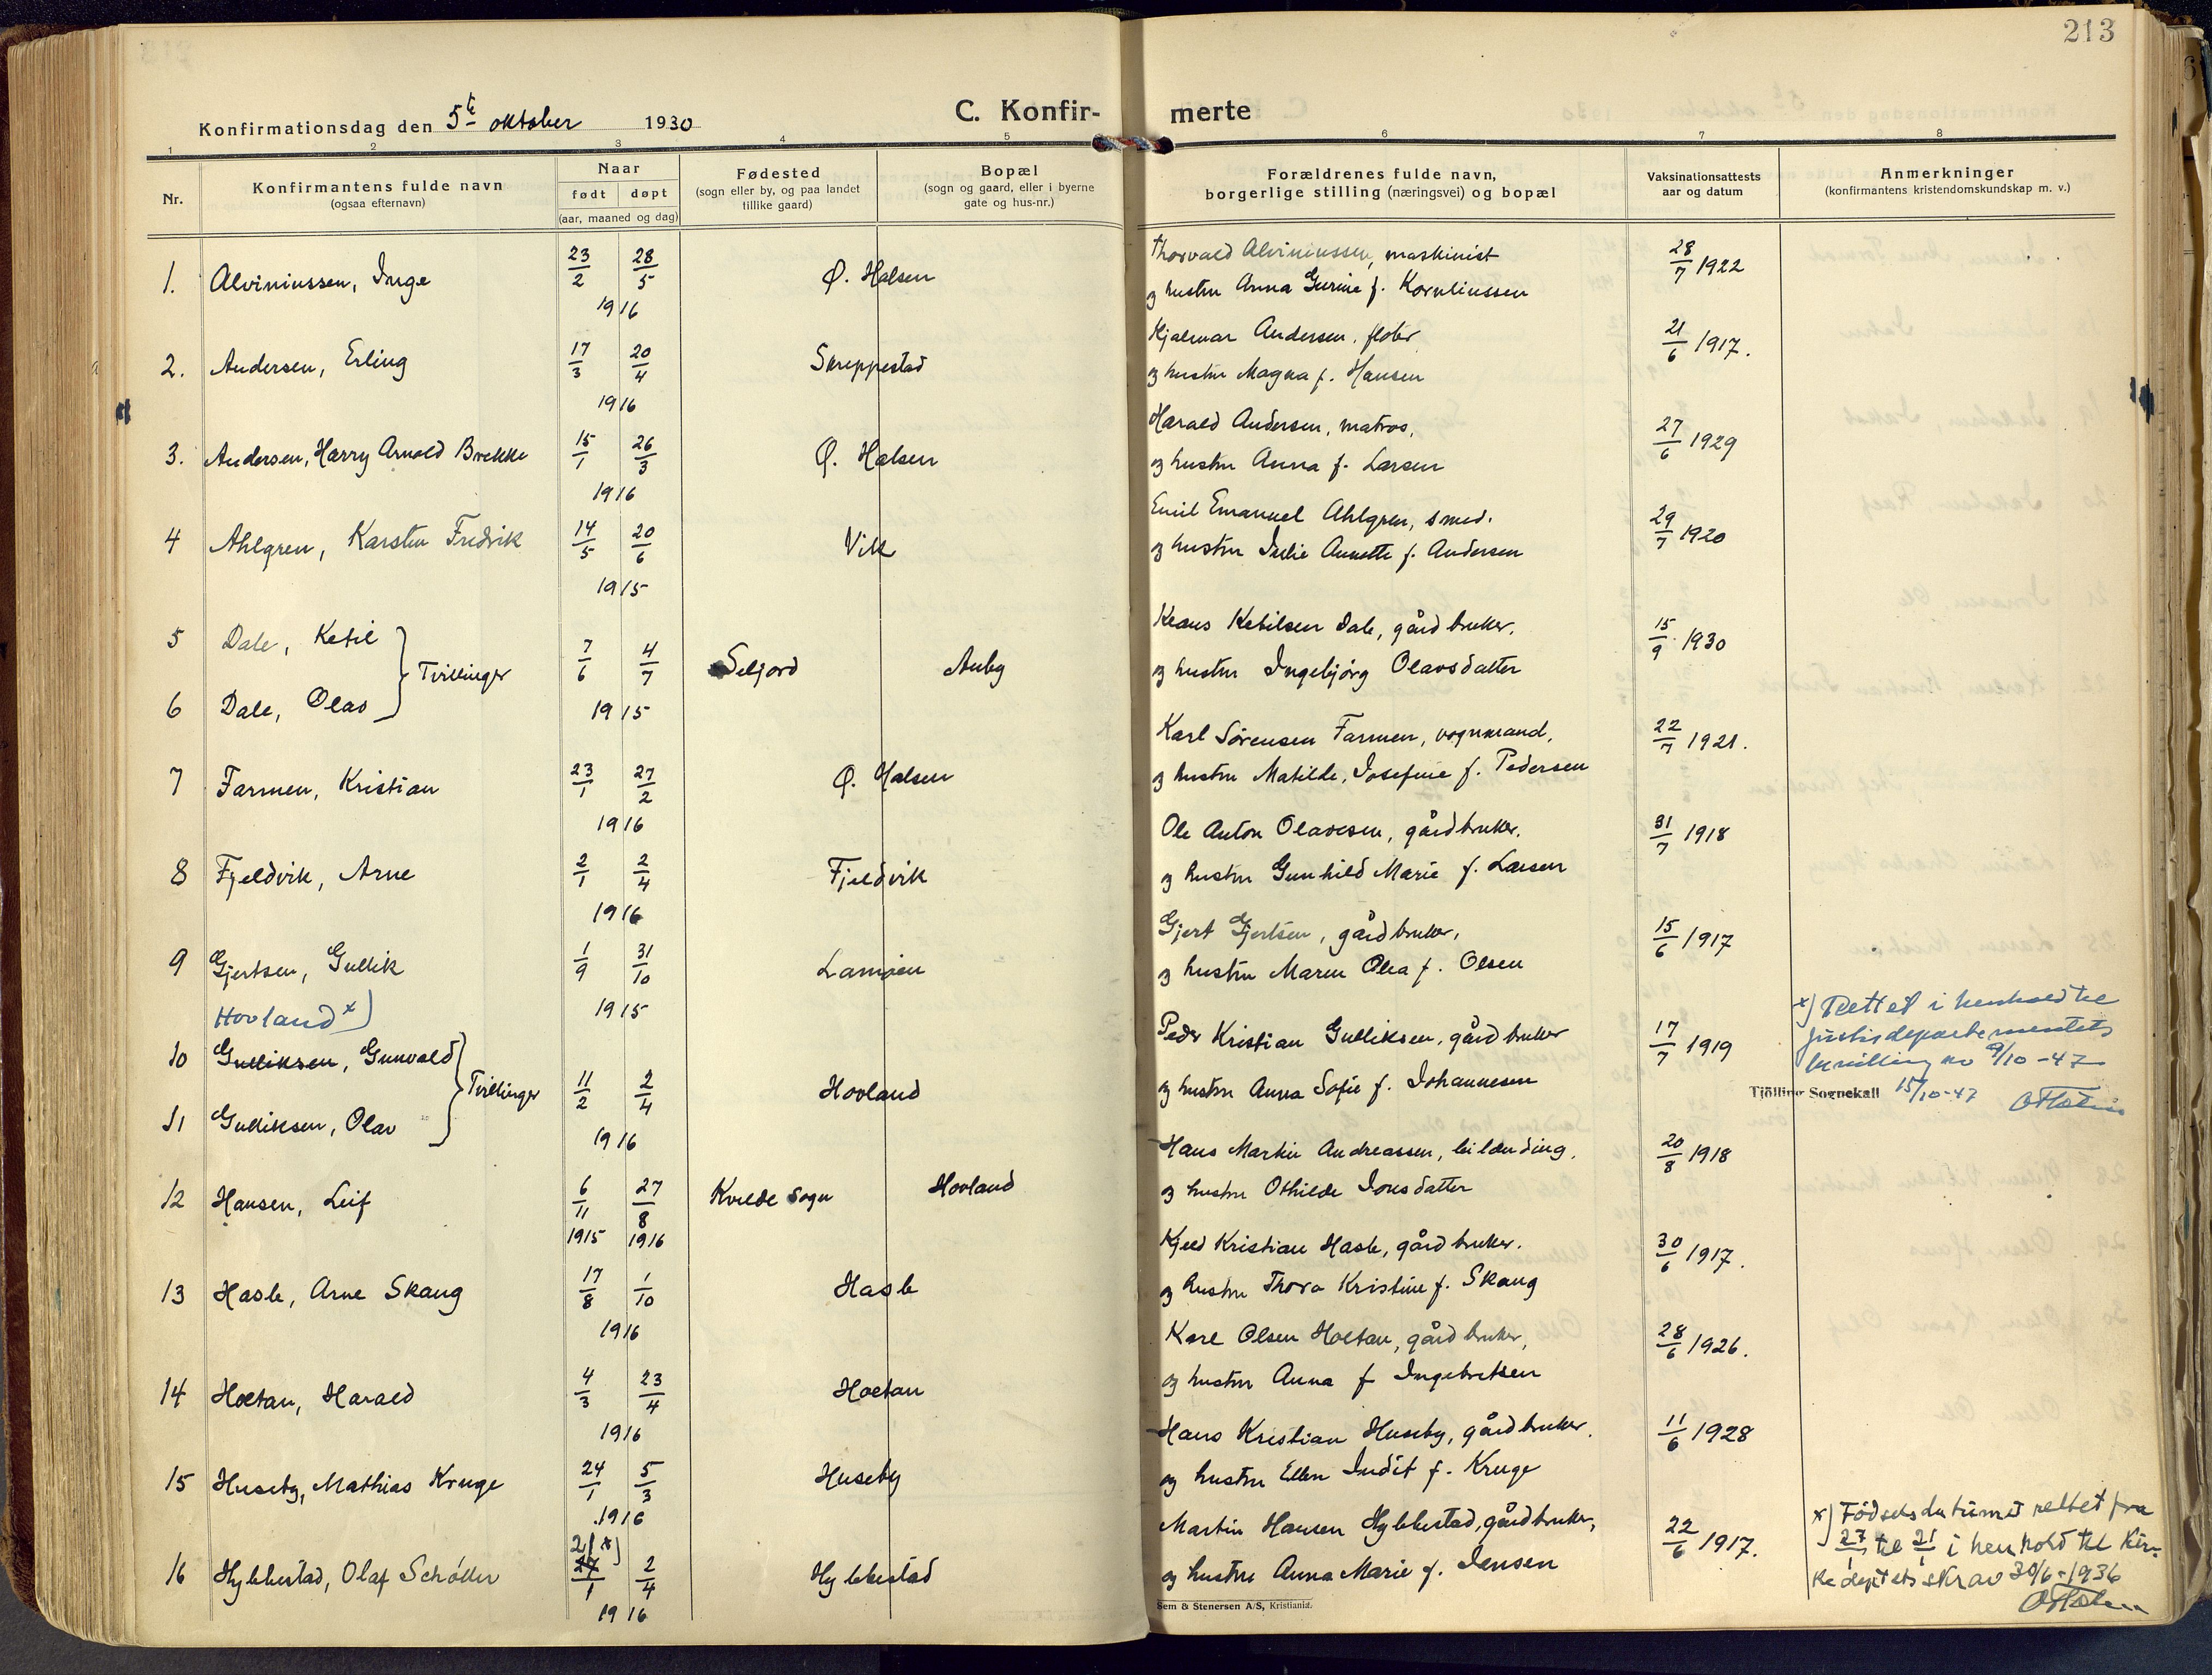 213
Konfirmationsdag den 5te oktober 1930
C. Konfir- merte
1 2 3 4 5 6 7 8
Nr.
Konfirmantens fulde navn
(ogsaa efternavn)
Naar
født døpt
(aar, maaned og dag)
Fødested
(sogn eller by, og paa landet
tillike gaard)
Bopæl
(sogn og gaard, eller i byerne
gate og hus-nr.)
Forældrenes fulde navn,
borgerlige stilling (næringsvei) og bopæl
Vaksinationsattests
aar og datum
Anmerkninger
(konfirmantens kristendomskundskap m. v.)
1. Alviniussen, Inge 23/2 28/5 1916 Ø. Halsen
Thorvald Alviniussen, maskinist 28/7 1922
og hustru Anna Gurine f. Kornliussen
2. Andersen, Erling 17/3 20/4 1916 Skreppestad
Hjalmar Andersen, fløter 21/6 1917.
og hustru Magna f. Hansen
3. Andersen, Harry Arnold Brekke 15/1 26/3 1916 Ø. Halsen
Harald Andersen, matros, 27/6 1929
og hustru Anna f. Larsen
4 Ahlgren, Karsten Fredrik 14/5 20/6 1915 Vik
Emil Emanuel Ahlgren, smed. 29/7 1920
og hustru Julie Annette f. Andersen
5 Dale, Ketil
6 Dale, Olav
Tvillinger 7/6 4/7 1915 Seljord Auby
Kleaus Ketilsen Dale, gårdbruker. 15/9 1930
og hustru Ingebjørg Olavsdatter
7 Farmen, Kristian 23/1 27/2 1916 Ø. Halsen
Karl Sørensen Farmen, vognmand, 22/7 1921.
og hustru Matilde, Josefine f. Pedersen
8 Fjeldvik, Arne 2/1 2/4 1916 Fjeldvik
Ole Anton Olavesen, gårdbruker. 31/7 1918
og hustru Gunhild Marie f. Larsen
9 Gjertsen, Gullik 1/9 31/10 1915 Lamøen
Gjert Gjertsen, gårdbruker, 15/6 1917
og hustru Maren Olea f. Olsen
Hovland x)
10 Gulliksen, Gunvald
11 Gulliksen, Olav
Tvillinger 11/2 2/4 1916 Hovland
Peder Kristian Gulliksen, gårdbruker 17/7 1919
og hustru Anna Sofie f. Johannesen
x) Rettet i henhold til
Justisdepartementets
bevilling av 9/10-47
Tjølling Sognekall 15/10-47
12 Hansen, Leif 6/11 1915 27/8 1916 Kvelde sogn Hovland
Hans Martin Andreassen, leilænding. 20/8 1918
og hustru Othilde Jonsdatter
13 Hasle, Arne Skaug 17/8 1/10 1916 Hasle
Kjeld Kristian Hasle, gårdbruker. 30/6 1917.
og hustru Thora Kristine f. Skaug
14 Holtan, Harald 4/3 23/4 1916 Holtan
Karl Olsen Holtan, gårdbruker, 28/6 1926.
og hustru Anna f Ingebretsen
15 Huseby, Mathias Kruge 24/1 5/3 1916 Huseby
Hans Kristian Huseby, gårdbruker. 11/6 1928
og hustru Ellen Judit f. Kruge
16 Hybbestad, Olaf Schøller 21 x) 27/1 2/4 1916 Hybbestad
Martin Hansen Hybbestad, gårdbruker, 22/6 1917.
og hustru Anna Marie f. Jensen
x) Fødselsdatumet rettet fra
27/1 til 21/1 i henhold til Kir-
kedeptets skr av 30/6-1936
Sem & Stenersen A/S, Kristiania.